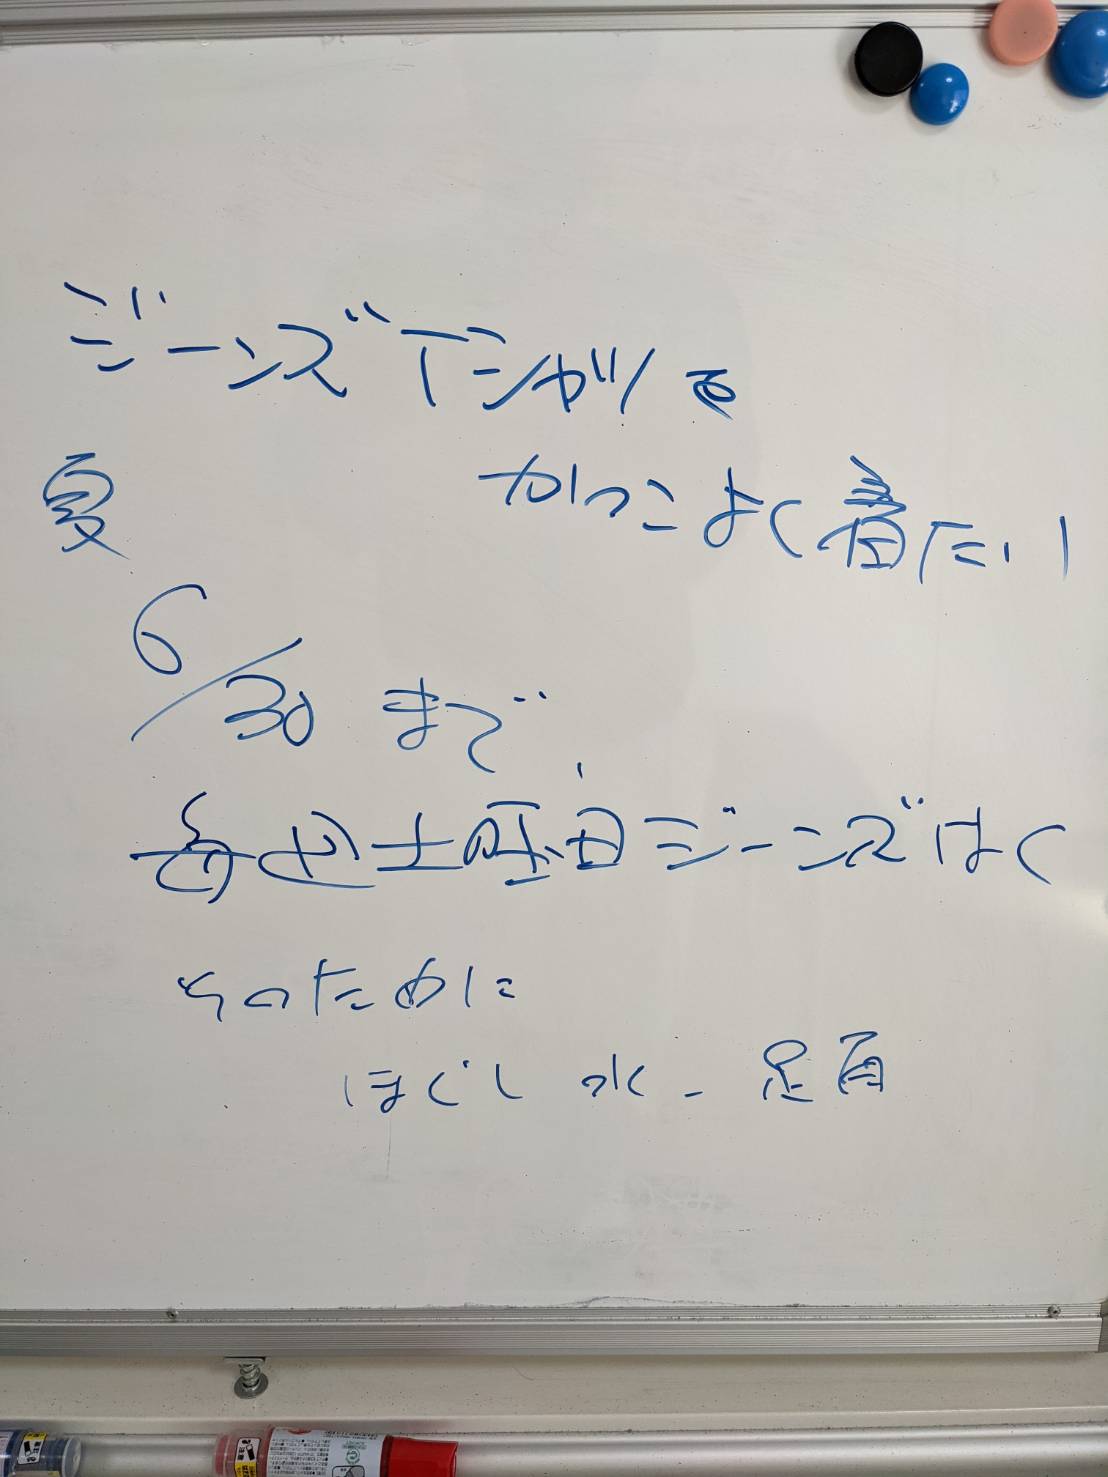 ジーンズTシャツを
夏 かっこよく着たい!
6/30 まで
土 日ジーンズはく
そのために
ほぐし 水 足首